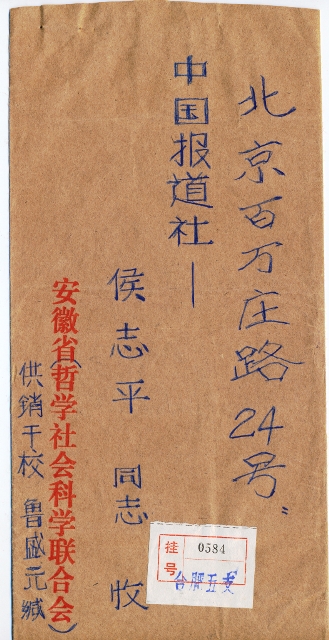 北京百万庄路24号
中国报道社
侯志平 同志 收
安徽省(哲学社会科学联合会)
供销干校 鲁盛元缄
挂号 0584
合肥五支